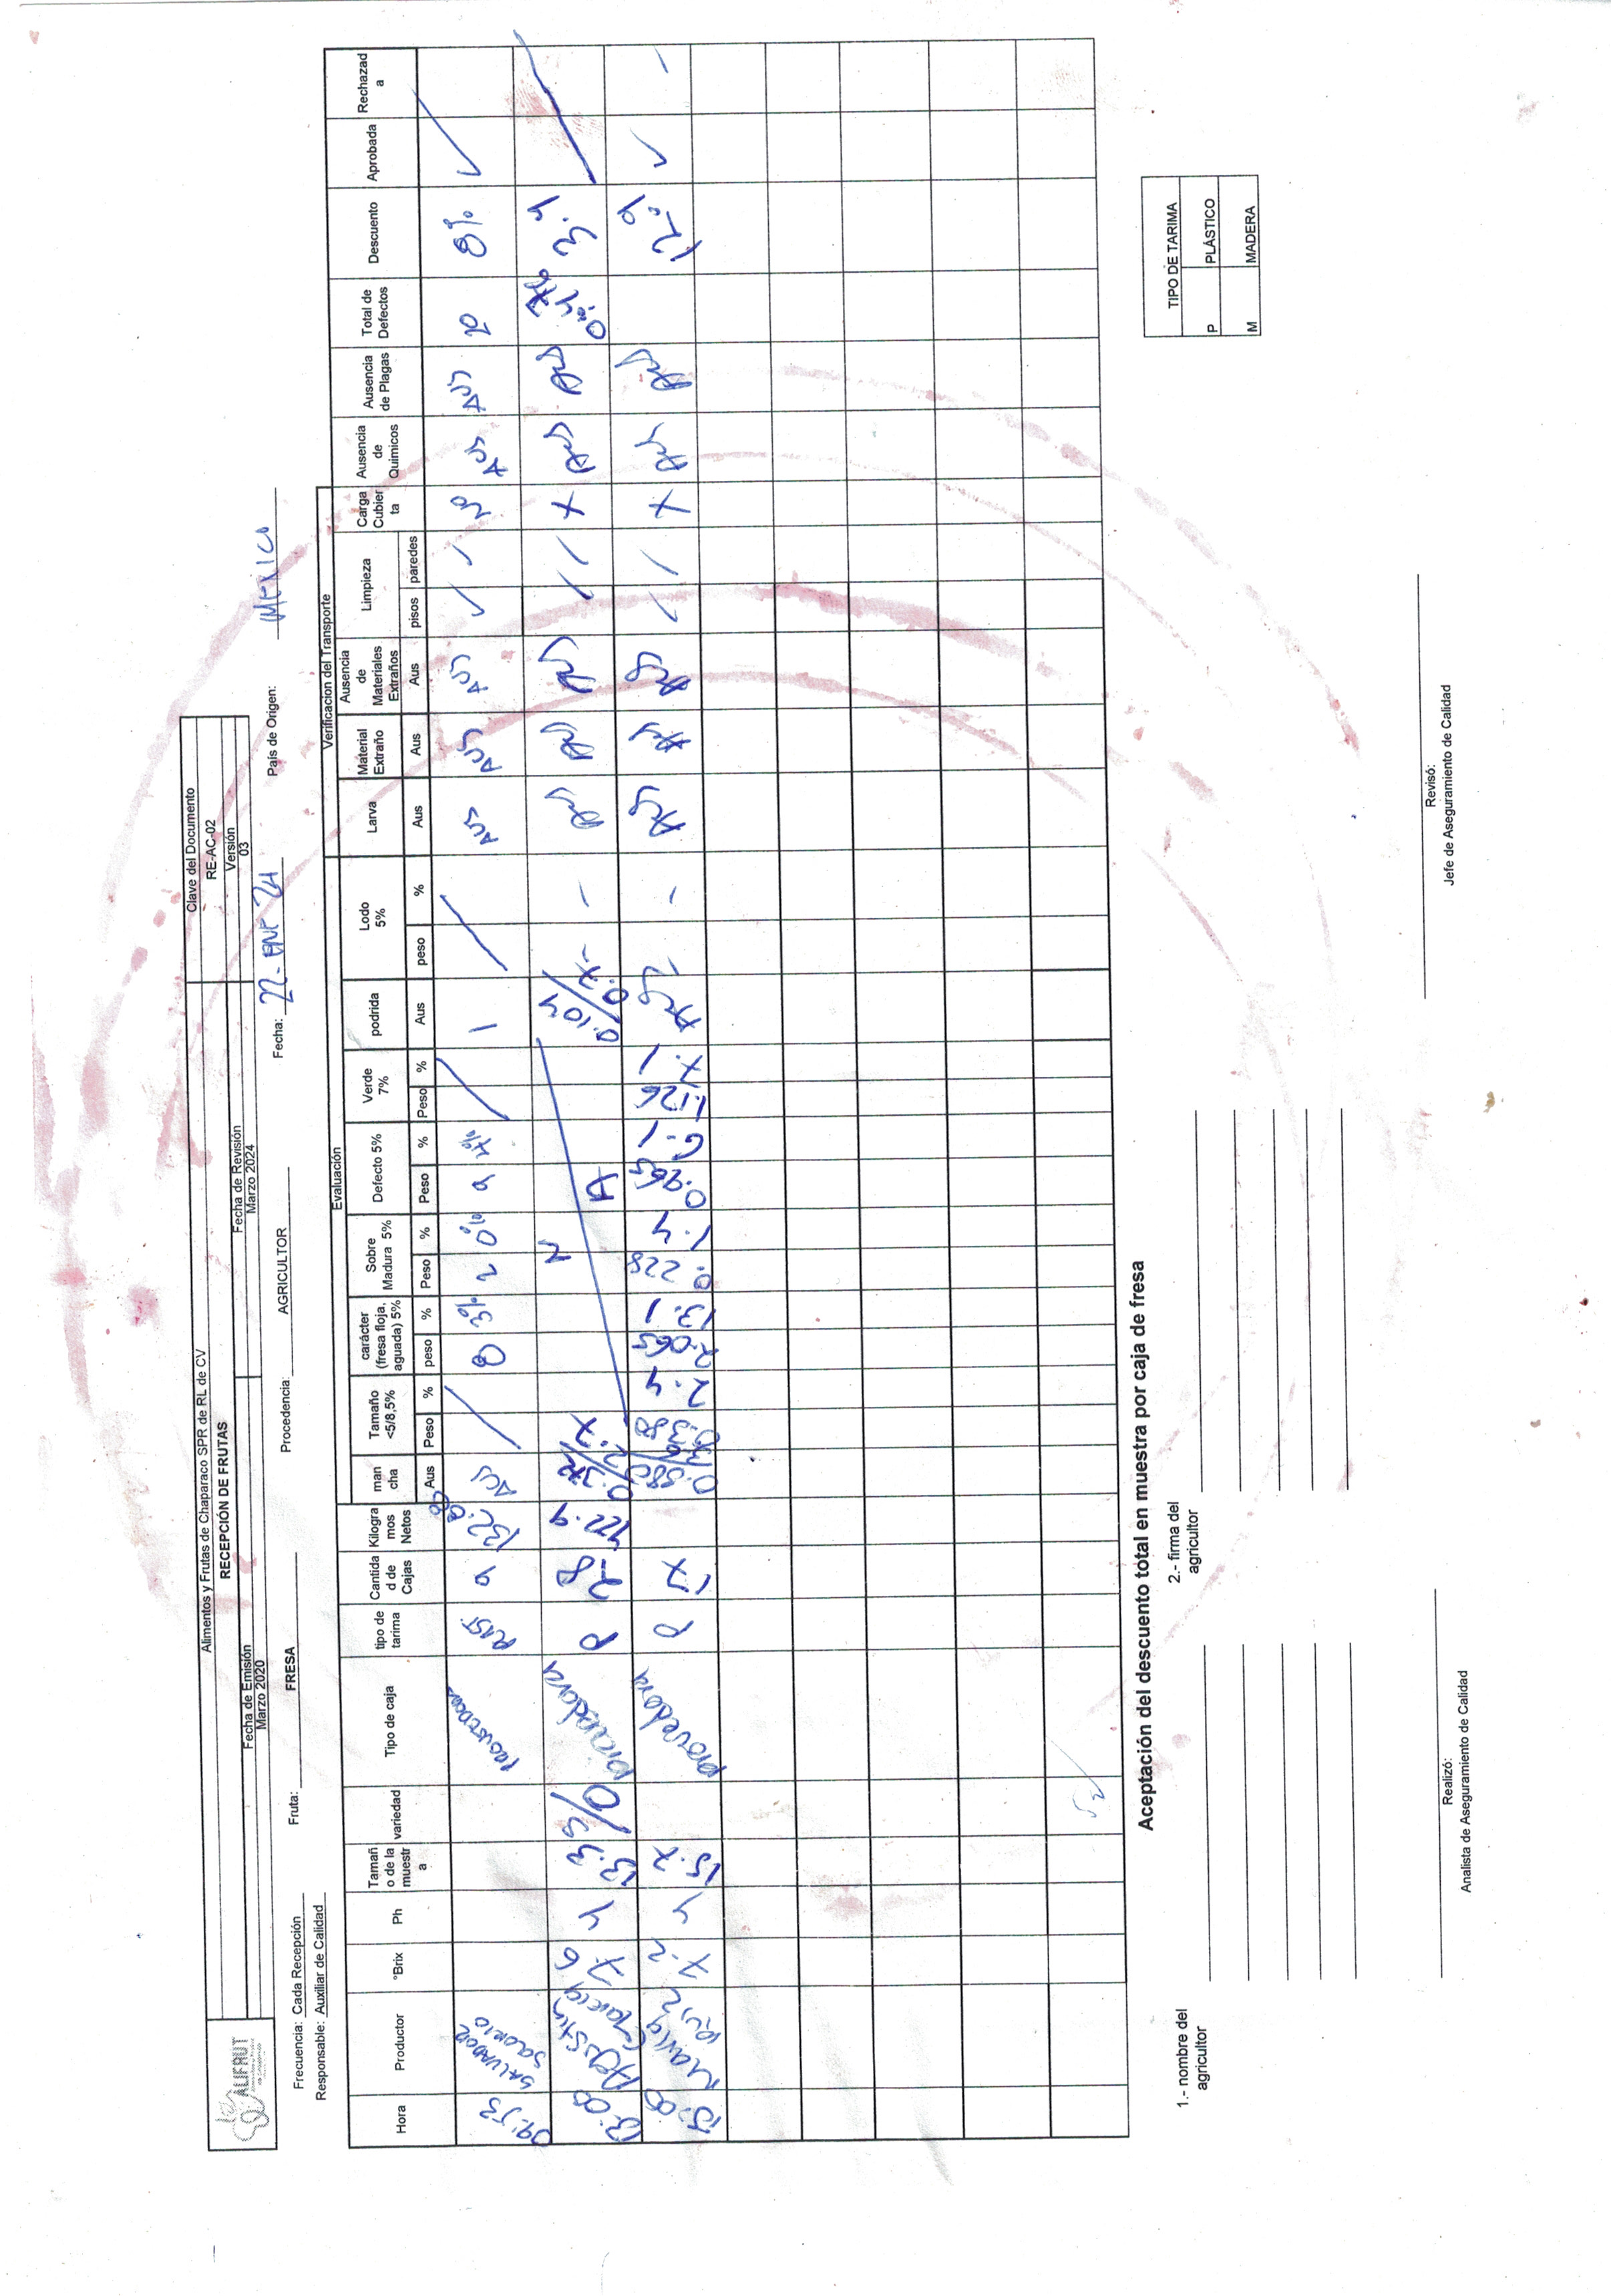 Alimentos y Frutas de Chaparaco SPR de RL de CV
RECEPCIÓN DE FRUTAS
Fecha de Emisión
Marzo 2020
Fecha de Revisión
Marzo 2024
Clave del Documento
RE-AC-02
Versión
03
ALIFRUT
Frecuencia: Cada Recepción
Fruta: FRESA
Procedencia: AGRICULTOR
Fecha: 22- ENE 24
País de Origen: MEXICO
Responsable: Auxiliar de Calidad
Evaluación
Verificacion del Transporte
Hora Productor °Brix Ph Tamañ o de la muestr a variedad Tipo de caja tipo de tarima Cantida d de Cajas Kilogra mos Netos man cha Tamaño <5/8,5% carácter (fresa floja, aguada) 5% Sobre Madura 5% Defecto 5% Verde 7% podrida Lodo 5% Larva Material Extraño Ausencia de Materiales Extraños Limpieza Carga Cubier ta Ausencia de Quimicos Ausencia de Plagas Total de Defectos Descuento Aprobada Rechazad a
Aus Peso % peso % Peso % Peso % Peso % Aus peso % Aus Aus Aus pisos paredes
09:53 SALVADOR SOLORIO PLAST. 9 132.88 AUS 8 3% 2 0% 9 4% 1 AUS AUS AUS ✓ ✓ NO AUS AUS 20 8% ✓
13:00 Agustin Garcia 7.6 4 13.3 P 28 422.9 0.372/2.7 N A 0.104/0.7 - - Aus Aus Aus X Aus Aus 0.476 3.4
15:00 Maria 7.2 4 15.7 provedora P 17 0.580 0.380 2.4 2.065 13.1 0.228 1.4 0.965 6.1 1.126 7.1 Aus - - Aus Aus Aus X Aus Aus 12.9 ✓ -
Aceptación del descuento total en muestra por caja de fresa
1.- nombre del agricultor
2.- firma del agricultor
TIPO DE TARIMA
P PLÁSTICO
M MADERA
Realizó:
Analista de Aseguramiento de Calidad
Revisó:
Jefe de Aseguramiento de Calidad